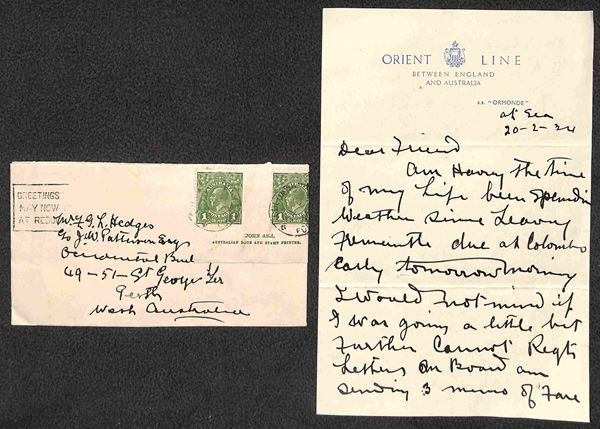 GREETINGS
MAY NOW
AT REDU
1
1
JOHN ASH,
AUSTRALIAN NOTE AND STAMP PRINTER.
Mr F. G. L. Hedges
c/o J. W. Patterson Esq
Occidental Build
49-51-St George Ter
Perth
West Australia
ORIENT LINE
BETWEEN ENGLAND
AND AUSTRALIA
S.S. "ORMONDE"
at Sea
20-2-34
Dear Friend
Am Having the time
of my Life been Splendid
Weather Since Leaving
Fremantle due at Colombo
Early tomorrow morning
I Would not mind if
I was going a little bit
Further Cannot Regt
Letters On Board am
Sending 3 menu of Fare